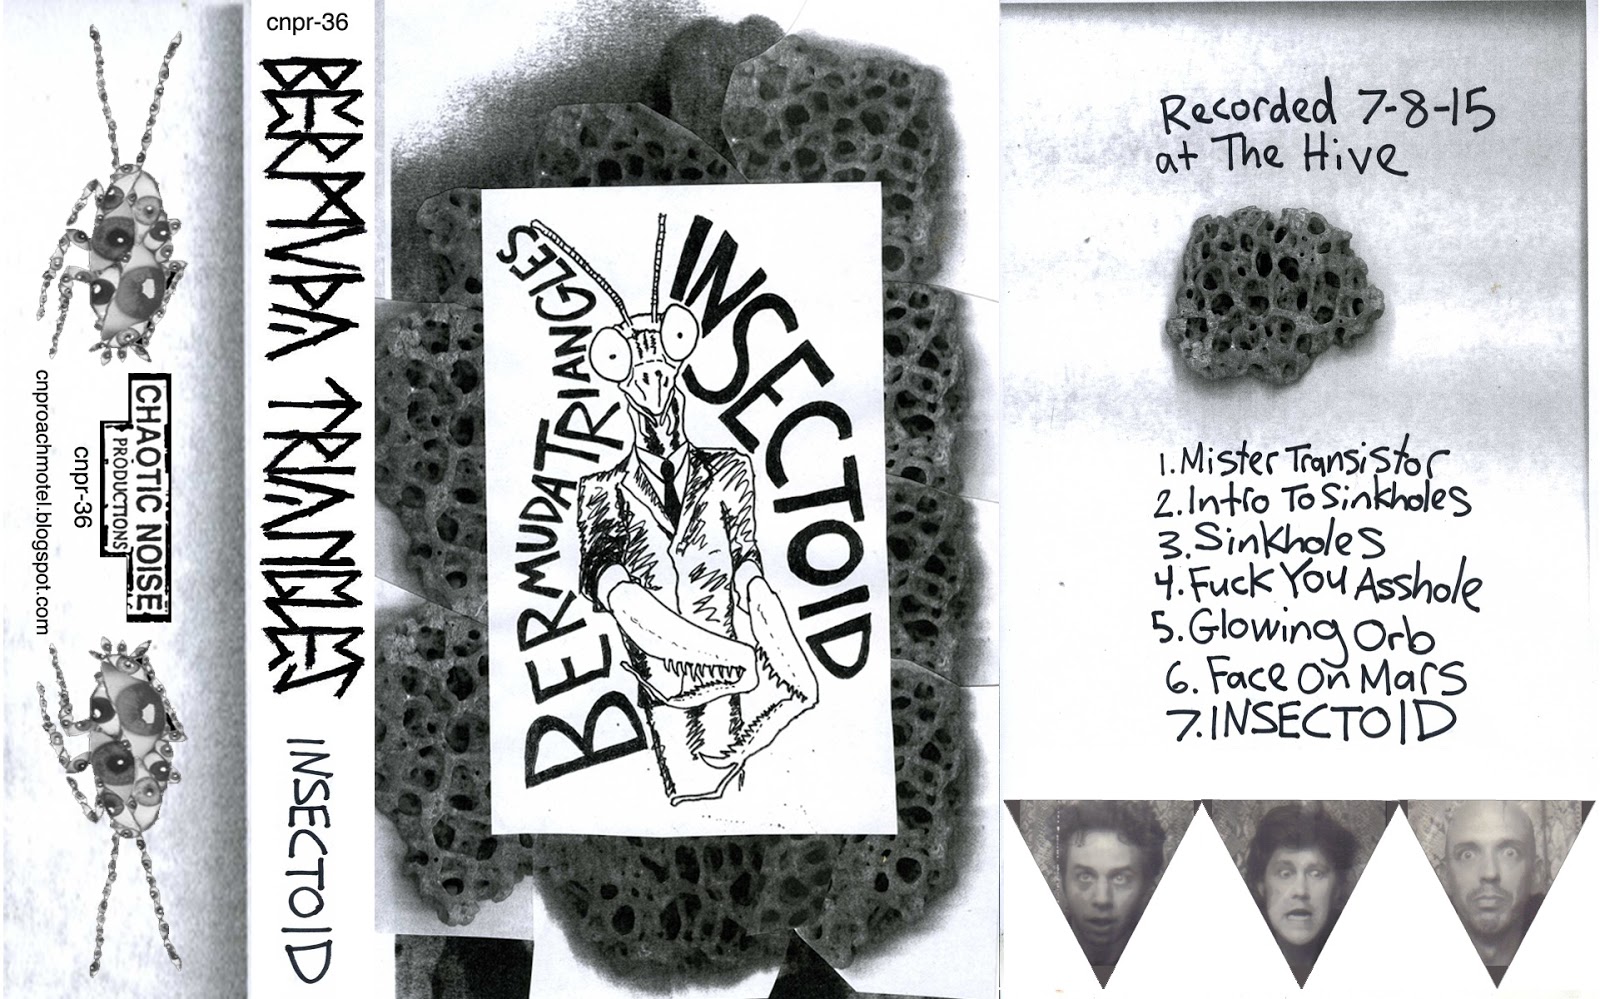 CHAOTIC NOISE
PRODUCTIONS
cnpr-36
cnproachmotel.blogspot.com
cnpr-36
BERMUDA TRIANGLES
INSECTOID
BERMUDA TRIANGLES
INSECTOID
Recorded 7-8-15
at The Hive
1. Mister Transistor
2. Intro To Sinkholes
3. Sinkholes
4. Fuck You Asshole
5. Glowing Orb
6. Face On Mars
7. INSECTOID